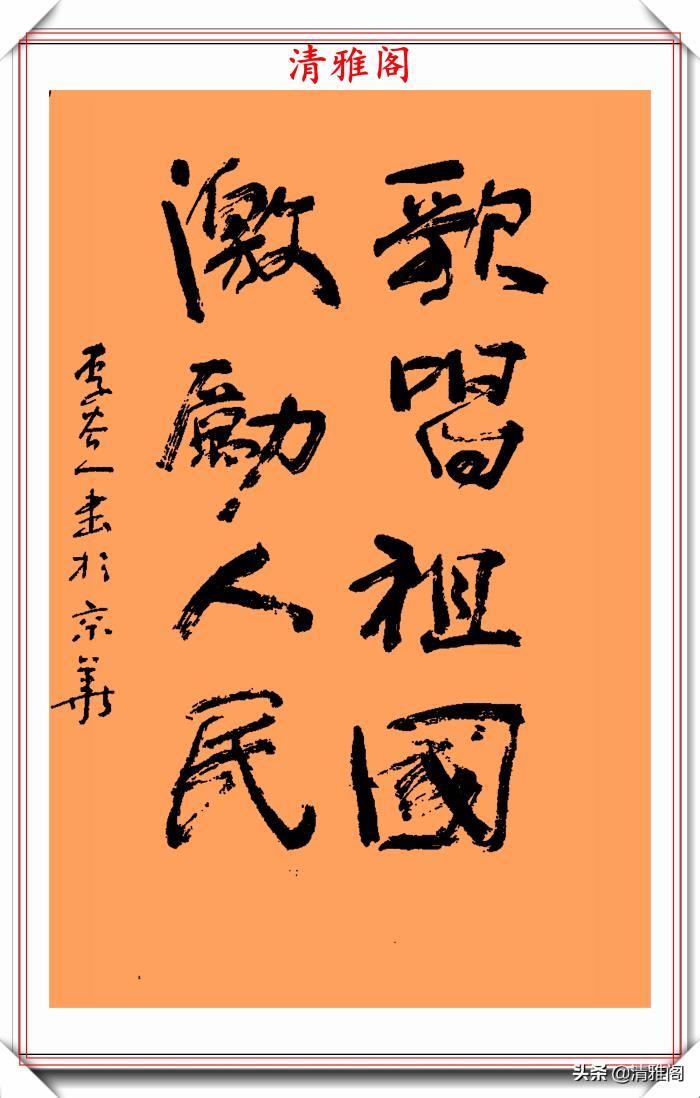 清雅阁
歌唱祖國
激勵人民
李谷一書於京華
头条 @清雅阁